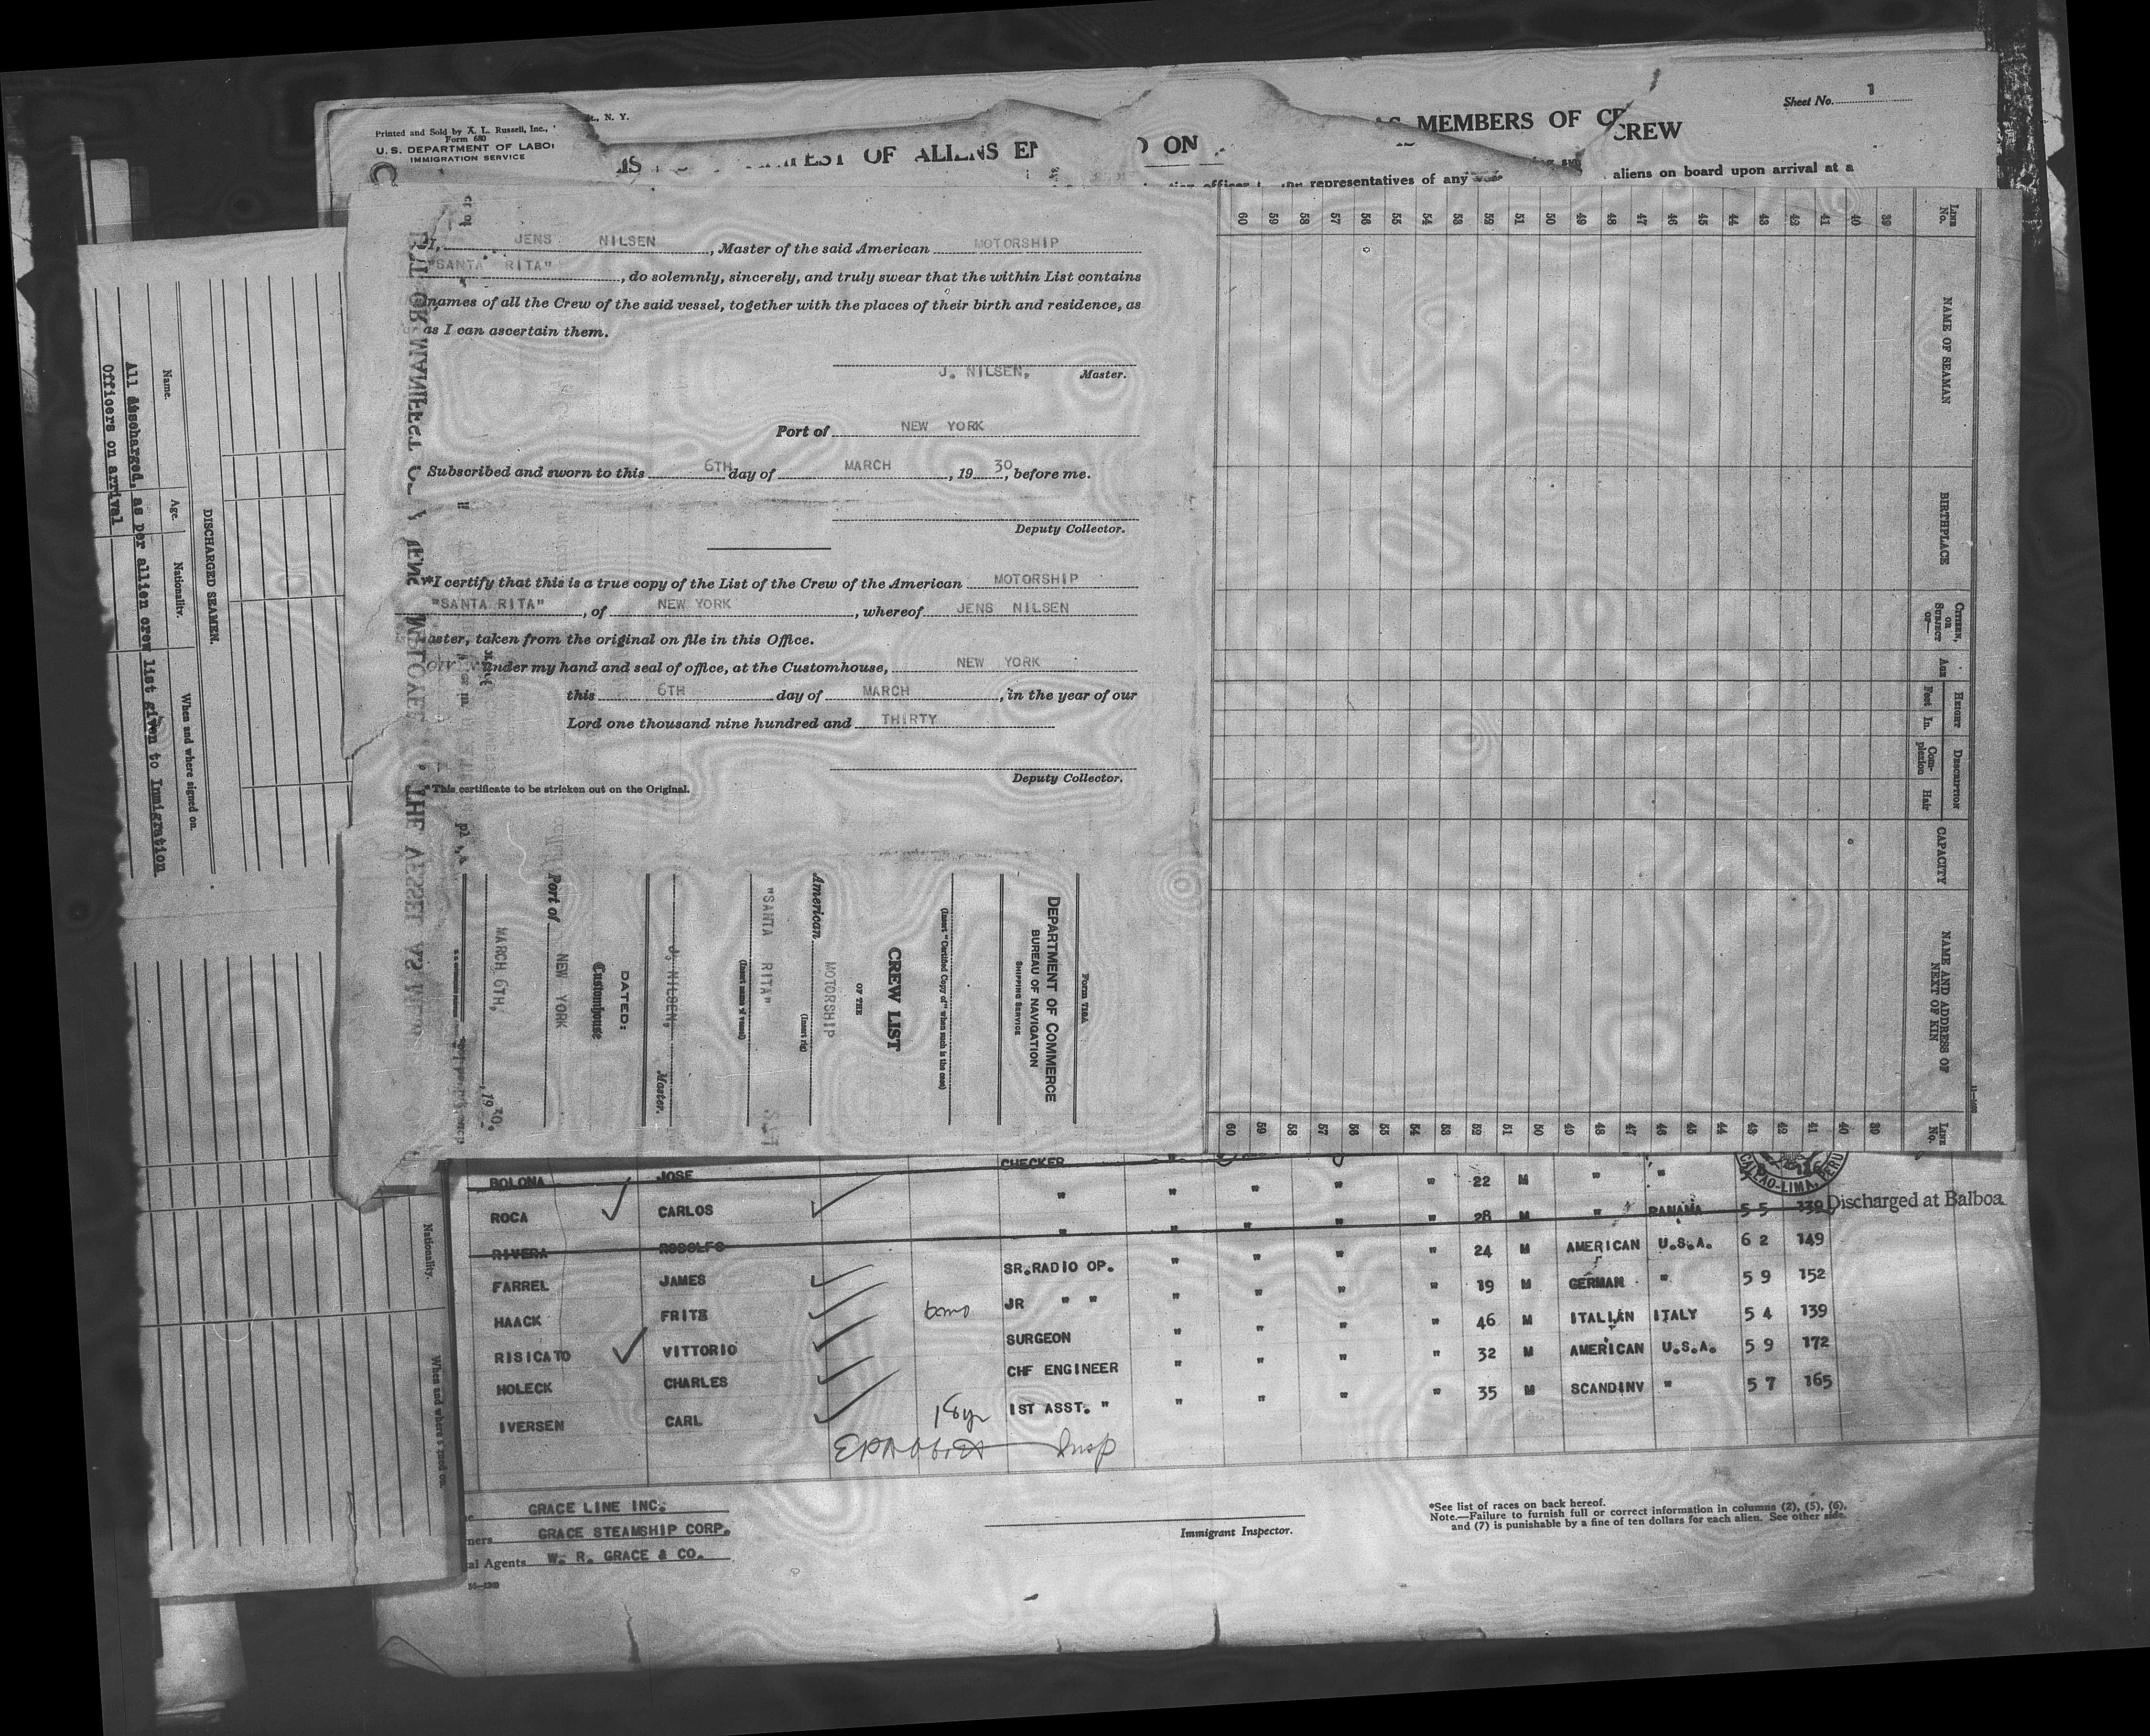 Sheet No. 1
Printed and Sold by A. L. Russell, Inc.,
Form 680
U. S. DEPARTMENT OF LABOR
IMMIGRATION SERVICE
N. Y.
OF ALIENS
ON
AS MEMBERS OF
CREW
representatives of any
aliens on board upon arrival at a
I, JENS NILSEN, Master of the said American MOTORSHIP
"SANTA RITA", do solemnly, sincerely, and truly swear that the within List contains
names of all the Crew of the said vessel, together with the places of their birth and residence, as
as I can ascertain them.
J. NILSEN, Master.
Port of NEW YORK
Subscribed and sworn to this 6TH day of MARCH, 19 30, before me.
Deputy Collector.
*I certify that this is a true copy of the List of the Crew of the American MOTORSHIP
"SANTA RITA", of NEW YORK, whereof JENS NILSEN
aster, taken from the original on file in this Office.
under my hand and seal of office, at the Customhouse, NEW YORK
this 6TH day of MARCH, in the year of our
Lord one thousand nine hundred and THIRTY
Deputy Collector.
*This certificate to be stricken out on the Original.
Form 710A
DEPARTMENT OF COMMERCE
BUREAU OF NAVIGATION
SHIPPING SERVICE
(Insert "Certified Copy of" when such is the case)
CREW LIST
OF THE
American MOTORSHIP
(Insert rig)
"SANTA RITA"
(Insert name of vessel)
J. NILSEN, Master.
DATED:
Customhouse
Port of NEW YORK
MARCH 6TH, , 19 30.
LINE No.
NAME OF SEAMAN
BIRTHPLACE
CITIZEN, OR SUBJECT OF—
HEIGHT
Feet In.
DESCRIPTION
Complexion Hair
CAPACITY
NAME AND ADDRESS OF NEXT OF KIN
LINE No.
60 59 58 57 56 55 54 53 52 51 50 49 48 47 46 45 44 43 42 41 40 39
60 59 58 57 56 55 54 53 52 51 50 49 48 47 46 45 44 43 42 41 40 39
DISCHARGED SEAMEN.
Name. Age. Nationality. When and where signed on.
All discharged, as per allien crew list given to Inmigration
Officers on arrival
Nationality. When and where signed on.
CALLAO-LIMA, PERU
CHECKER
BOLONA JOSE " " " " " 22 M " "
ROCA CARLOS " " " " " 28 M " PANAMA 5 5 139 Discharged at Balboa
RIVERA RODOLFO
FARREL JAMES SR.RADIO OP. " " " " 24 M AMERICAN U.S.A. 6 2 149
HAACK FRITZ JR " " " " " " 19 M GERMAN " 5 9 152
RISICATO VITTORIO SURGEON " " " " 46 M ITALIAN ITALY 5 4 139
HOLECK CHARLES CHF ENGINEER " " " " 32 M AMERICAN U.S.A. 5 9 172
IVERSEN CARL 18yr 1ST ASST. " " " " " 35 M SCANDINV " 5 7 165
Insp
GRACE LINE INC.
GRACE STEAMSHIP CORP.
al Agents W. R. GRACE & CO.
Immigrant Inspector.
*See list of races on back hereof.
Note.—Failure to furnish full or correct information in columns (2), (5), (6),
and (7) is punishable by a fine of ten dollars for each alien. See other side.